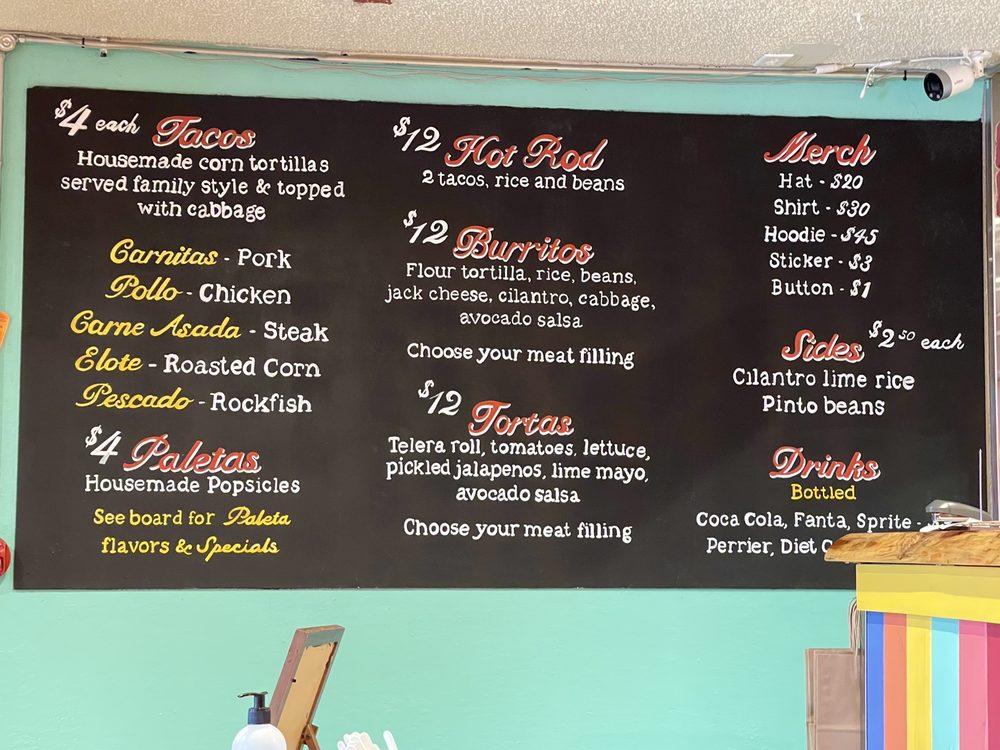 $4 each Tacos
Housemade corn tortillas
served family style & topped
with cabbage
Carnitas - Pork
Pollo - Chicken
Carne Asada - Steak
Elote - Roasted Corn
Pescado - Rockfish
$4 Paletas
Housemade Popsicles
See board for Paleta
flavors & Specials
$12 Hot Rod
2 tacos, rice and beans
$12 Burritos
Flour tortilla, rice, beans,
jack cheese, cilantro, cabbage,
avocado salsa
Choose your meat filling
$12 Tortas
Telera roll, tomatoes, lettuce,
pickled jalapenos, lime mayo,
avocado salsa
Choose your meat filling
Merch
Hat - $20
Shirt - $30
Hoodie - $45
Sticker - $3
Button - $1
Sides $2 50 each
Cilantro lime rice
Pinto beans
Drinks
Bottled
Coca Cola, Fanta, Sprite -
Perrier, Diet